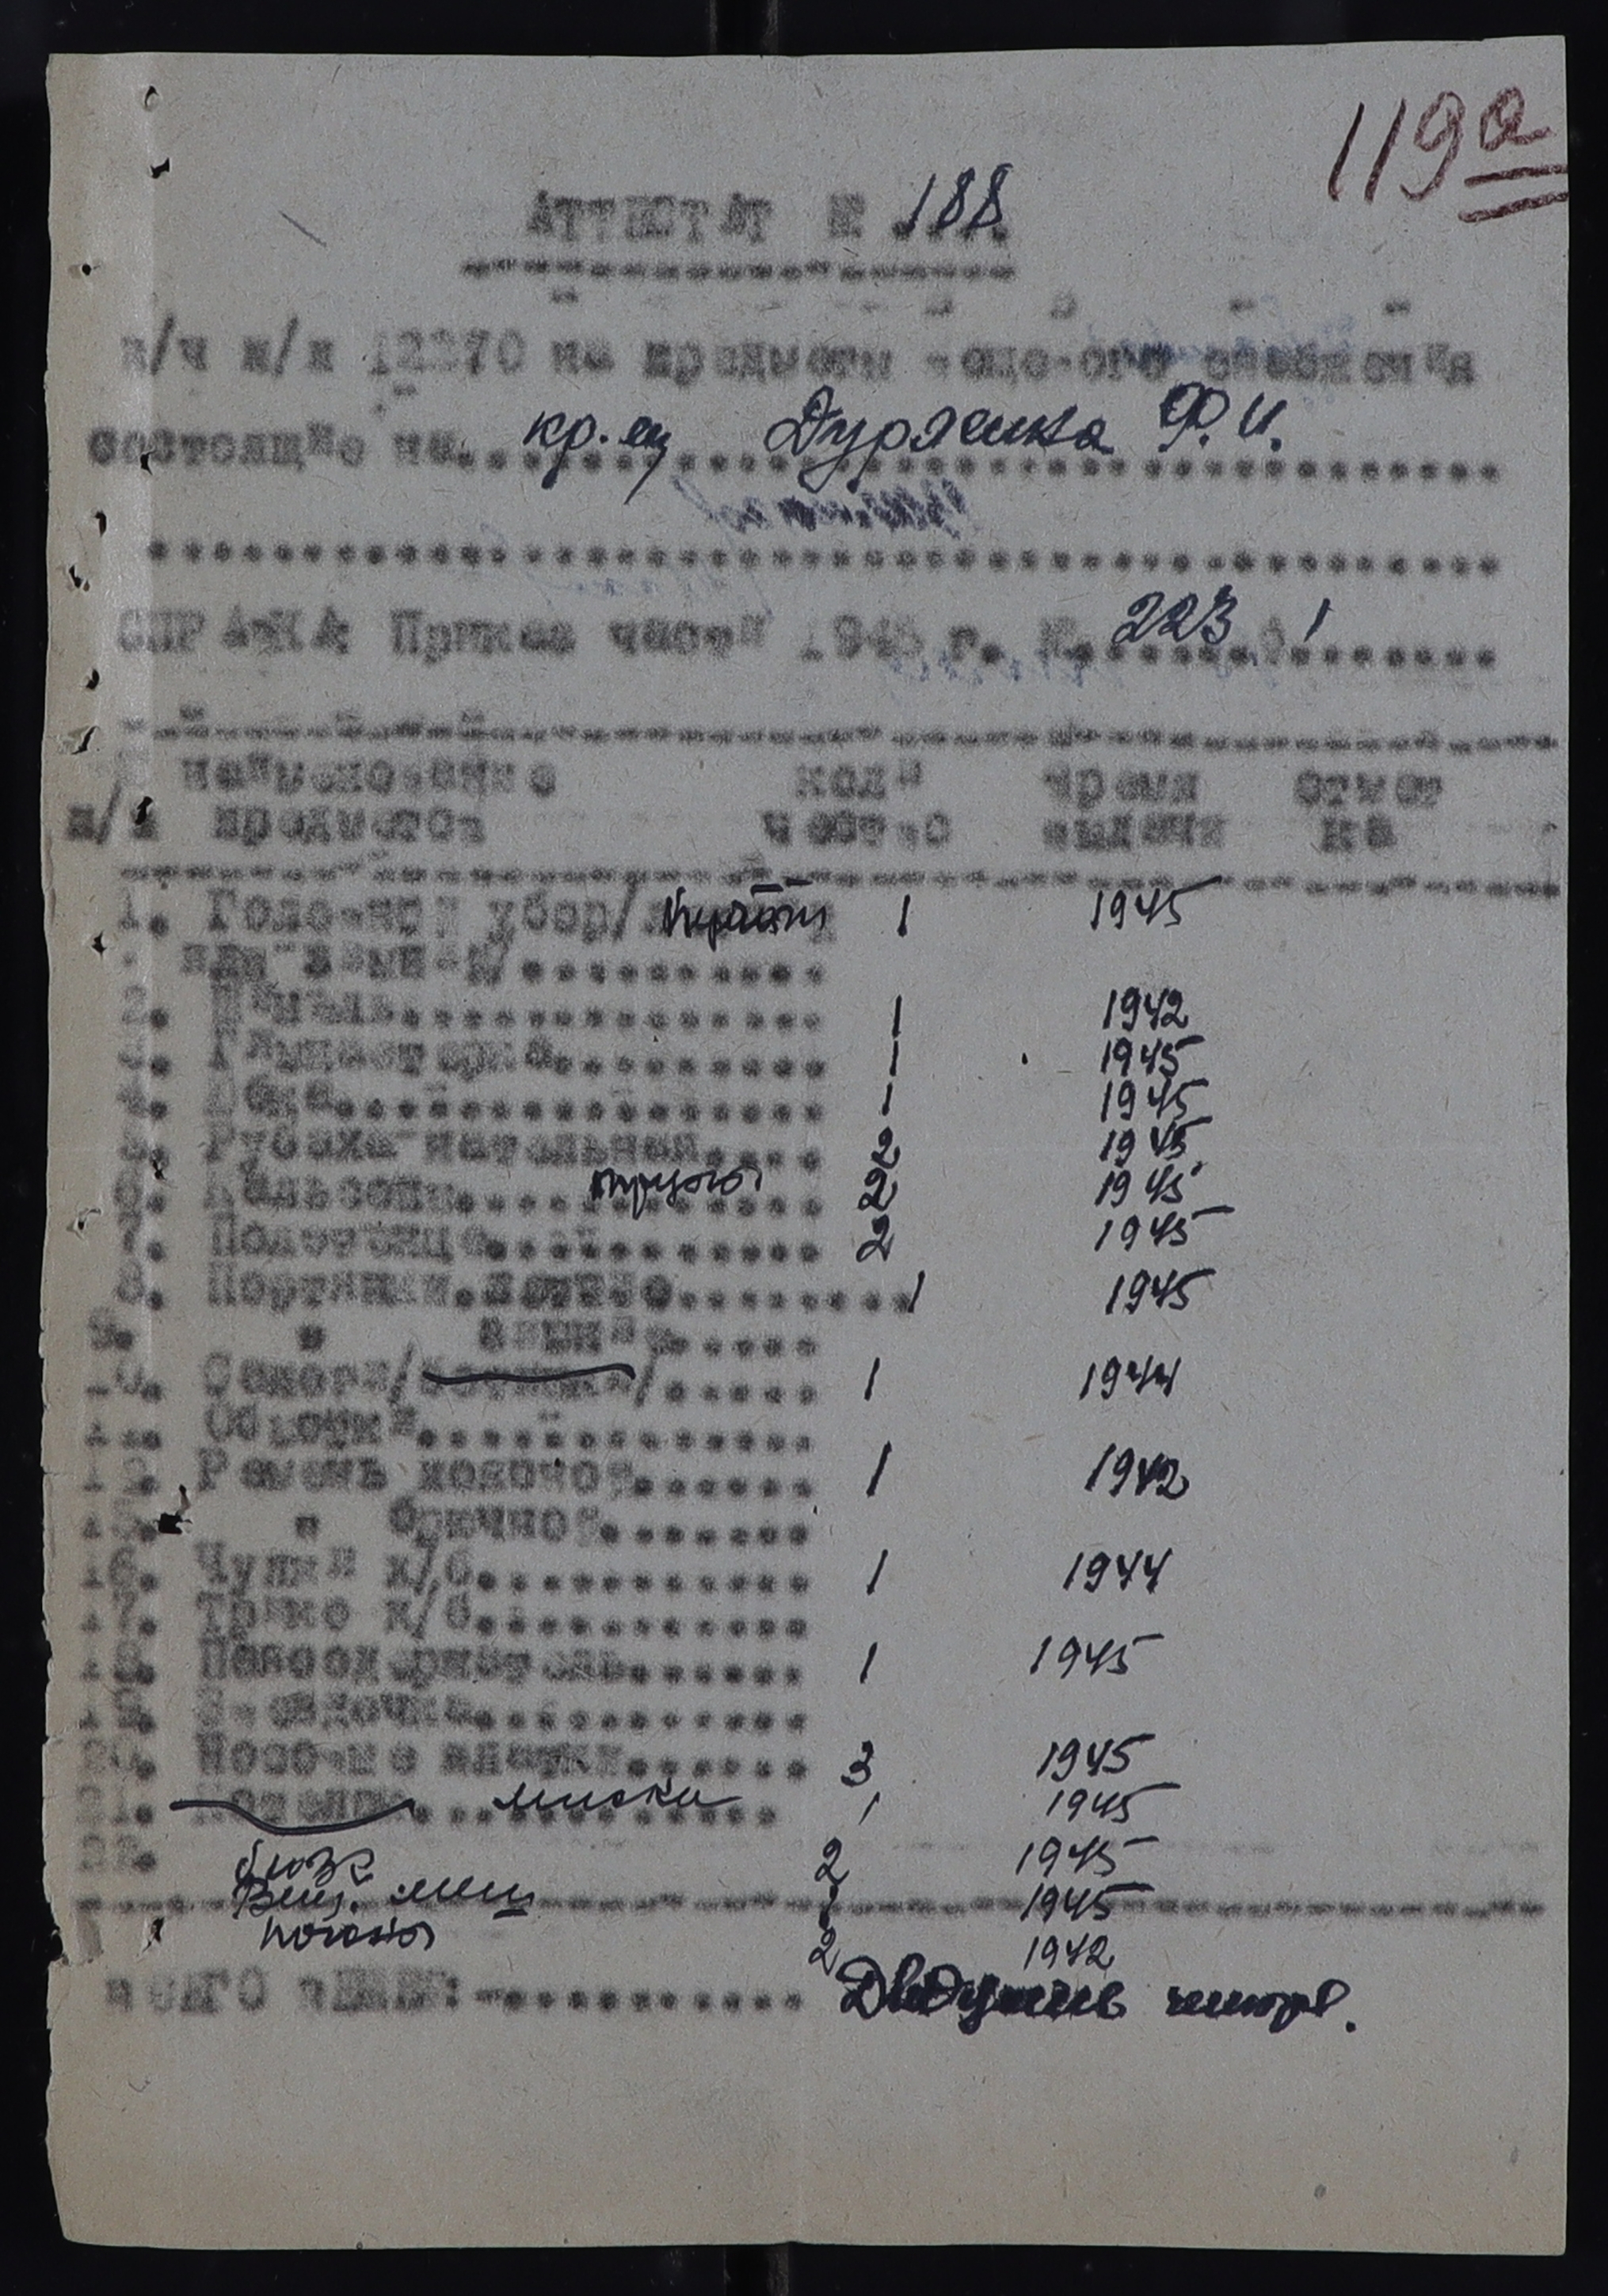 119а
АТТЕСТАТ № 188
в/ч п/п 12270 на предметы вещевого снабжения
состоящие на кр-ец Дурягина Ф. И.
СПРАВКА Приказ части 1945 г. №. 223 § 1
Наименование коли время отмет
п/п предметов чество выдачи ка
1. Головной убор/ 1 1945
или зимний/
2. Шинель 1 1942
3. Гимнастерка 1 1945
4. Юбка 1 1945
5. Рубаха нательная 2 1945
6. Кальсоны трусы 2 1945
7. Полотенце 2 1945
8. Портянки летние 1 1945
9. " зимние
10. Сапоги/ботинки/ 1 1944
11. Обмотки
12. Ремень поясной 1 1942
13. " брючной
16. Чулки х/б 1 1944
17. Трико х/б
18. 1 1945
19.
20. Носовые платки 3 1945
21. миска 1 1945
22. 2 1945
Вещ. меш 1 1945
погоны 2 1942
ВСЕГО ВЕЩЕЙ:-